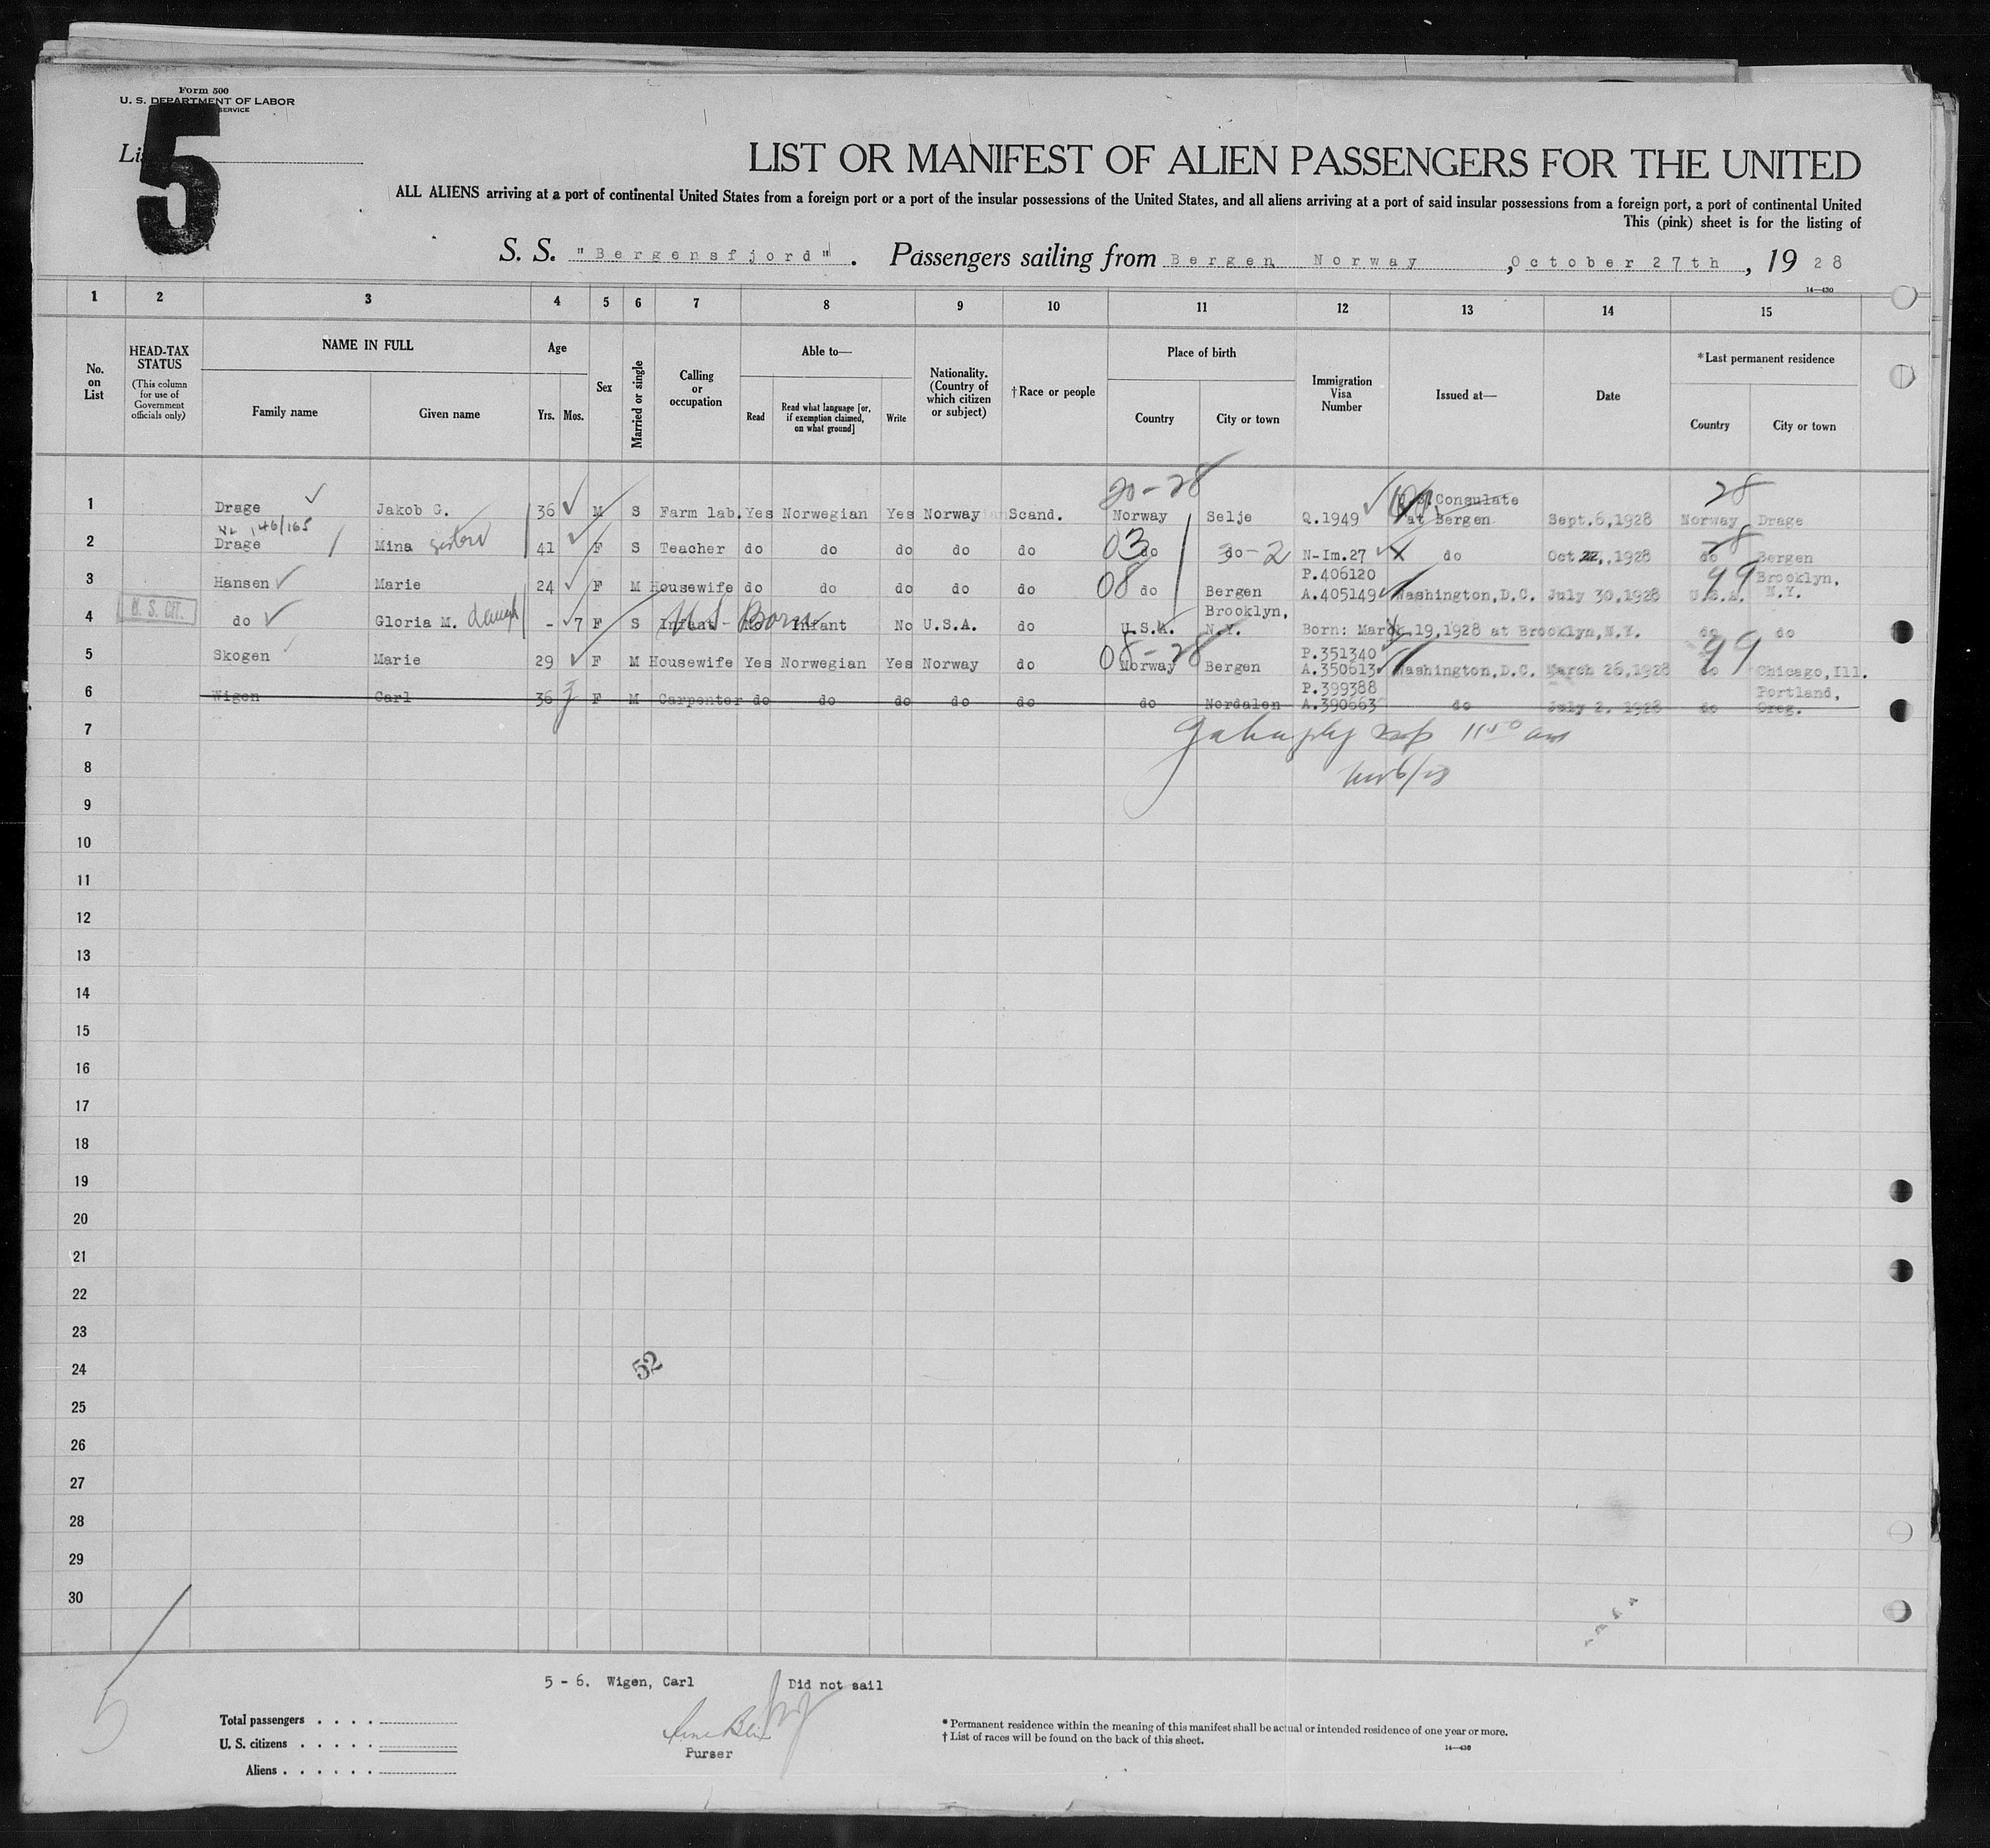 Form 500
U. S. DEPARTMENT OF LABOR
SERVICE
5
LIST OR MANIFEST OF ALIEN PASSENGERS FOR THE UNITED
ALL ALIENS arriving at a port of continental United States from a foreign port or a port of the insular possessions of the United States, and all aliens arriving at a port of said insular possessions from a foreign port, a port of continental United
This (pink) sheet is for the listing of
S. S. "Bergensfjord". Passengers sailing from Bergen Norway, October 27th, 19 28
14—430
1 2 3 4 5 6 7 8 9 10 11 12 13 14 15
No. on List
HEAD-TAX STATUS (This column for use of Government officials only)
NAME IN FULL
Family name Given name
Age
Yrs. Mos.
Sex
Married or single
Calling or occupation
Able to—
Read Read what language [or, if exemption claimed, on what ground] Write
Nationality. (Country of which citizen or subject)
†Race or people
Place of birth
Country City or town
Immigration Visa Number
Issued at—
Date
*Last permanent residence
Country City or town
20-28 28
U.S. Consulate
1 Drage Jakob G. 36 M S Farm lab. Yes Norwegian Yes Norway Scand. Norway Selje Q.1949 at Bergen Sept.6,1928 Norway Drage
146/165
03 28
2 Drage Mina sister 41 F S Teacher do do do do do do do -2 N-Im.27 do Oct 22,,1928 do Bergen
P.406120 99 Brooklyn,
3 Hansen Marie 24 F M Housewife do do do do do 08 do Bergen A.405149 Washington,D.C. July 30,1928 U.S.A. N.Y.
U. S. CIT.
U S Born Brooklyn,
4 do Gloria M. daugh - 7 F S Infant No Infant No U.S.A. do U.S.A. N.Y. Born: March 19,1928 at Brooklyn,N.Y. do do
08-28 P.351340 99
5 Skogen Marie 29 F M Housewife Yes Norwegian Yes Norway do Norway Bergen A.350613 Washington,D.C. March 26,1928 do Chicago,Ill.
P.399388 Portland,
6 Wigen Carl 36 F M Carpenter do do do do do do Nordalen A.390663 do July 2, 1928 do Oreg.
7
8
9
10
11
12
13
14
15
16
17
18
19
20
21
22
23
24
52
25
26
27
28
29
30
5 - 6. Wigen, Carl Did not sail
Purser
Total passengers . . . .
U. S. citizens . . . . .
Aliens . . . . . .
* Permanent residence within the meaning of this manifest shall be actual or intended residence of one year or more.
† List of races will be found on the back of this sheet.
14—430
5